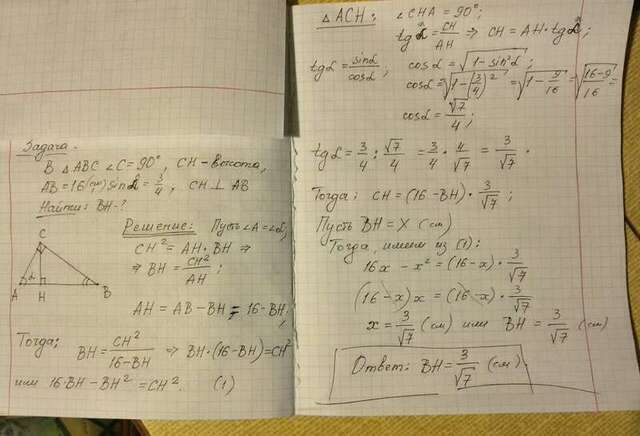 Задача.
В △ABC ∠C=90°, CH-высота,
AB=16(см) sin∠=3/4, CH⊥AB
Найти: BH-?
C
A H B
Решение: Пусть ∠A=∠α,
CH²=AH·BH ⇒
⇒ BH=CH²/AH;
AH=AB-BH=16-BH;
Тогда:
BH=CH²/(16-BH) ⇒ BH·(16-BH)=CH²
или 16BH-BH²=CH². (1)
△ACH: ∠CHA=90°;
tgα=CH/AH ⇒ CH=AH·tgα;
tgα=sinα/cosα; cosα=√(1-sin²α);
cosα=√(1-(3/4)²)=√(1-9/16)=√((16-9)/16)=
cosα=√7/4;
tgα=3/4:√7/4=3/4·4/√7=3/√7.
Тогда: CH=(16-BH)·3/√7;
Пусть BH=X (см)
Тогда, имеем из (1):
16x-x²=(16-x)·3/√7
(16-x)x=(16-x)·3/√7
x=3/√7 (см) или BH=3/√7 (см)
Ответ: BH=3/√7 (см).